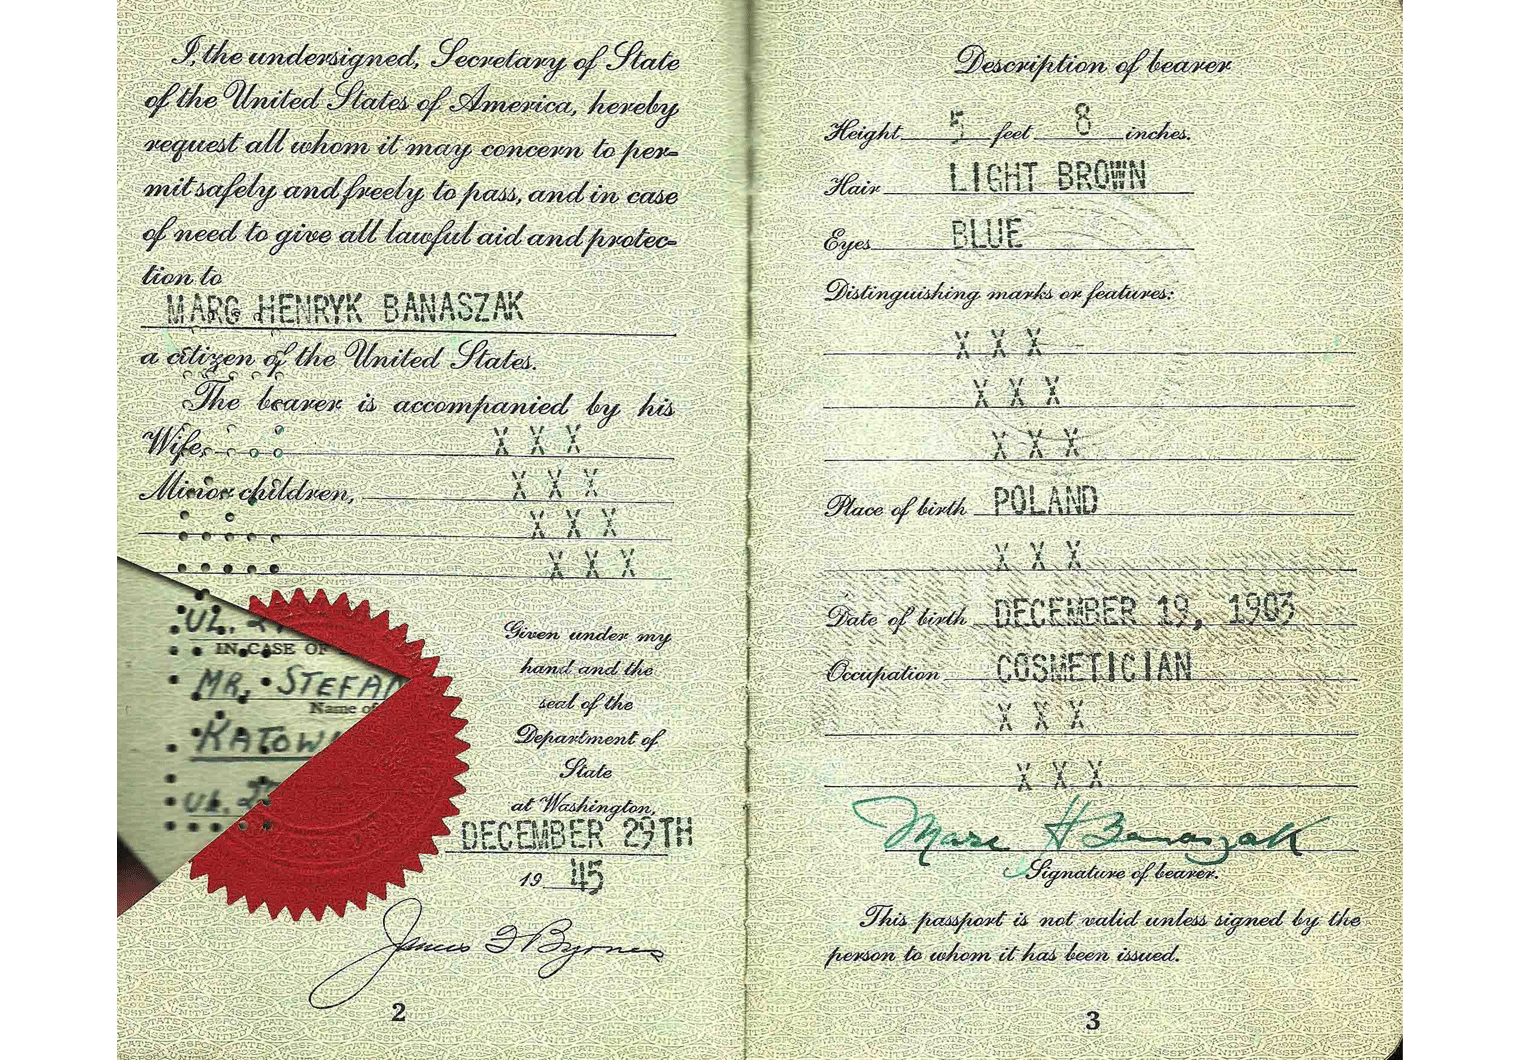 I, the undersigned, Secretary of State
of the United States of America, hereby
request all whom it may concern to per-
mit safely and freely to pass, and in case
of need to give all lawful aid and protec-
tion to
MARC HENRYK BANASZAK
a citizen of the United States.
The bearer is accompanied by his
Wife, X X X
Minor children, X X X
X X X
X X X
UL.
IN CASE OF
MR. STEFAN
Name of
KATOW
UL.
Given under my
hand and the
seal of the
Department of
State
at Washington,
DECEMBER 29TH
19 45
James F Byrnes
2
Description of bearer
Height 5 feet 8 inches.
Hair LIGHT BROWN
Eyes BLUE
Distinguishing marks or features:
X X X
X X X
X X X
Place of birth POLAND
X X X
Date of birth DECEMBER 19, 1903
Occupation COSMETICIAN
X X X
X X X
Marc H Banaszak
Signature of bearer.
This passport is not valid unless signed by the
person to whom it has been issued.
3